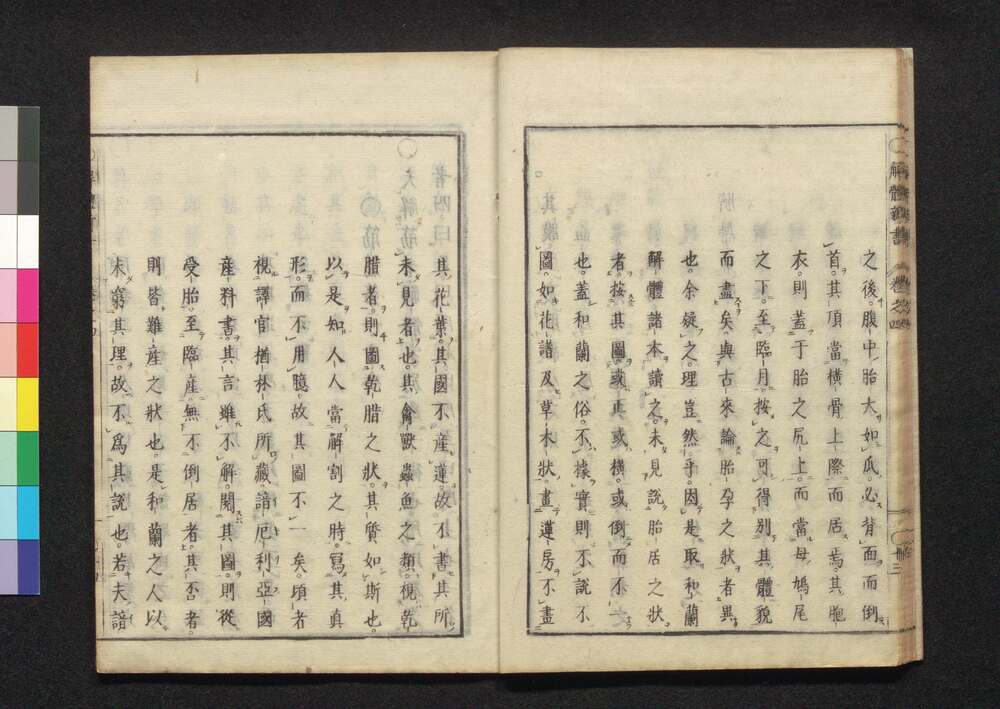 解體新書 卷之四
之後。腹中胎大如瓜。必背面而倒
首。其頂當橫骨上際而居焉。其胞
衣。則蓋于胎之尻上。而當母鳩尾
之下。至臨月。按之可得別其體貌
而盡矣。與古來論胎孕之狀者異
也。余疑之。理豈然乎。因是取和蘭
解體諸本讀之。未見說胎居之狀
者。按其圖。或正或橫。或倒而不一
也。蓋和蘭之俗。不據實則不說。不
圖。如花譜及草木狀。畫蓮房不畫
其花葉。其國不產蓮。故不書其所
未見者也。其禽獸蟲魚之類。視乾
腊者。則圖乾腊之狀。其質如斯也。
以是知人人當解割之時。寫其真
形。而不用臆。故其圖不一矣。頃者
視譯官楢林氏所藏諳厄利亞國
產科書。其言雖不解。閱其圖。則從
受胎。至臨產。無不倒居者。其否者。
則皆難產之狀也。是和蘭之人以
未窮其理。故不爲其說也。若夫諳